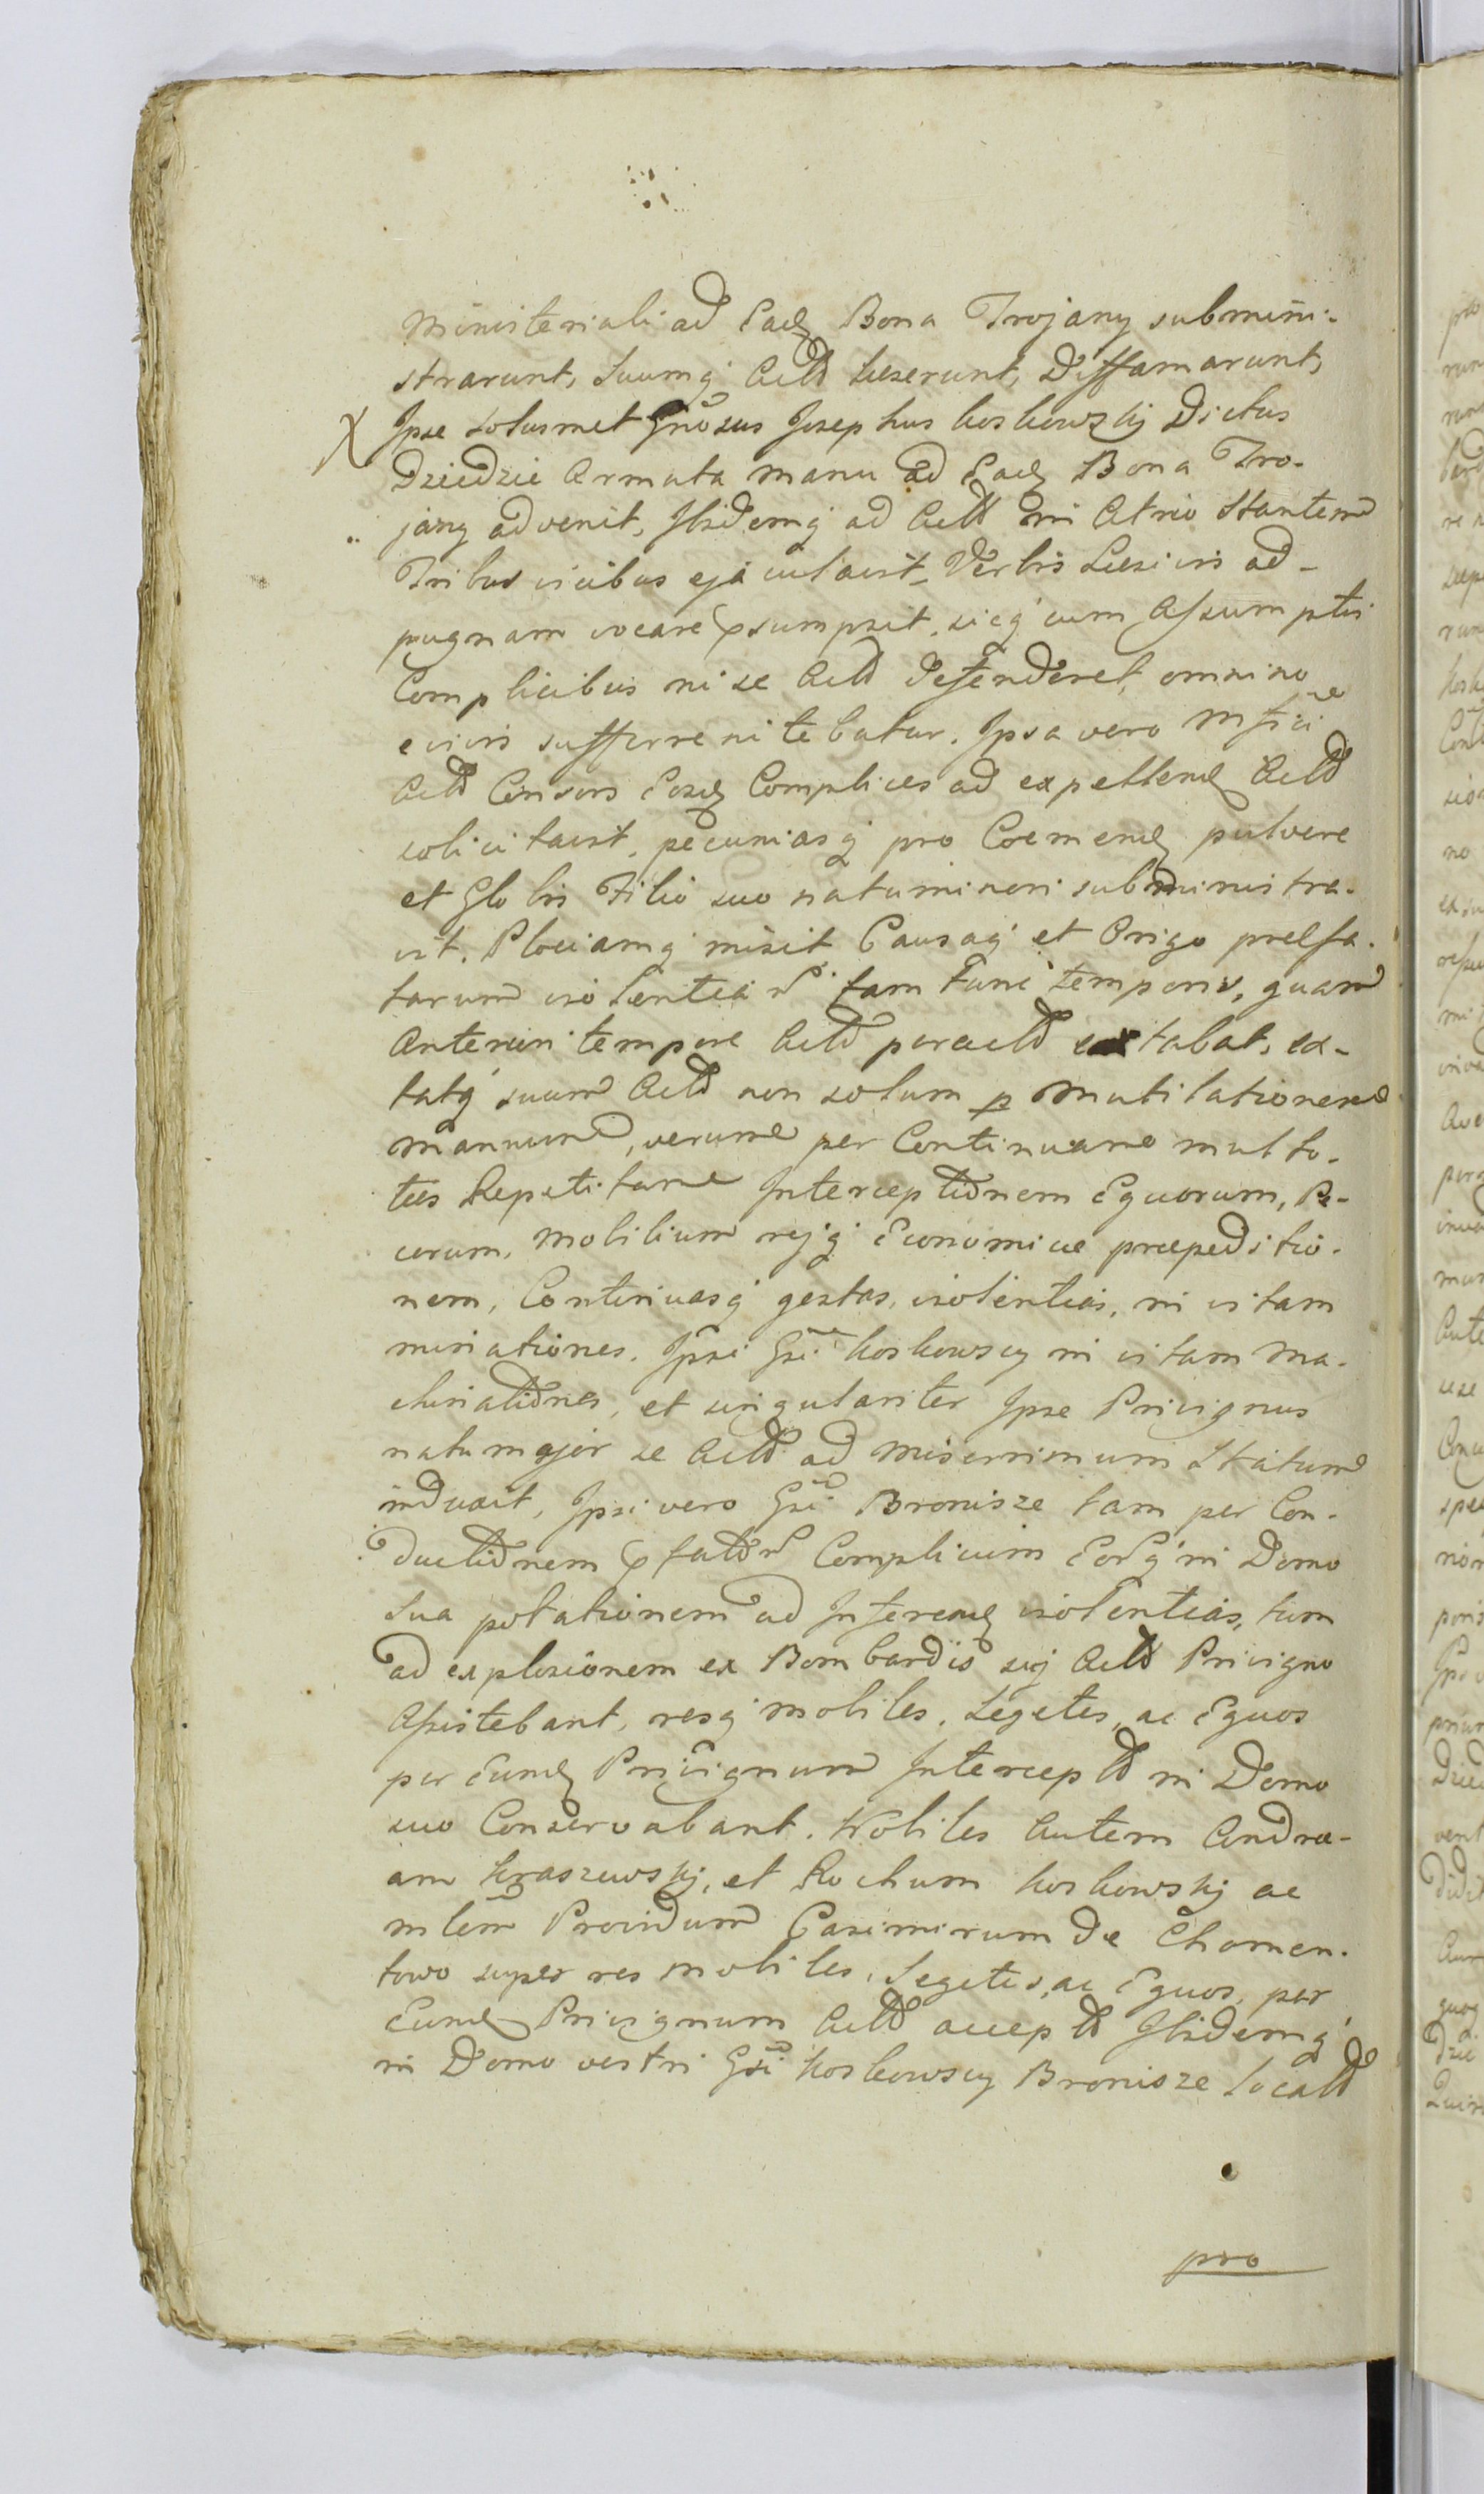 Ministeriali ad Eadq Bona Trojany submini-
strarunt, Suumq Actt Laeserunt, Diffamarunt,
X Ipse solusmet Gnosus Josephus Koskowskij Dictus
Dziedzic Armata manu ad Eadq Bona Tro-
jany advenit, Ibidemq ad Actt in Atrio Stantem
Tribus vicibus ejaculavit, Verbis Laesivis ad-
pugnam vocare psumpsit, sicq cum Assumptis
Complicibus ni se Actt defenderet, omnino
e vivis sufferre nitebatur. Ipsa vero Mfica
Actt Consors Eosdq Complices ad expellendq Actt
solicitavit, pecuniasq pro Coemendq pulvere
et Globis Filio suo natuminori subministra-
vit, Plociamq misit, Causaq et Origo praefa-
tarum violentiar tam tunc temporis, quam
Anteriori tempore Actt per actt extabat, ex-
tatq suum Actt non solum p Mutilationem
Manuum, verum per Continuam multo-
ties Repetitam Interceptionem Equorum, Pe-
corum, Mobilium rejq Economicae praepeditio-
nem, Continuasq gestas, violentias, in vitam
minationes. Ipsi Gsi Koskowscy in vitam Ma-
chinationes, et singulariter Ipse Privignus
natumajor se Actt ad miserrimum Statum
induxit, Ipsi vero Gsi Bronisze tam per Con-
ductionem pfator Complicum Eorq in Domo
Sua potationem ad Inferendq violentias, tum
ad explosionem ex Bombardis sij Actt Privigno
Assistebant, resq mobiles, Segetes, ac Equos
per Eundq Privignum Intercept in Domo
suo Conservabant. Nobiles Autem Andre-
am Kraszewskij, et Rochum Koskowskij ac
mlem Providum Casimirum de Chomen-
towo super res mobiles, Segetes, ac Equos, per
Eundq Privignum Actt accept Ibidemq
in Domo vestri Gsi Koskowscy Bronisze locatt
pro